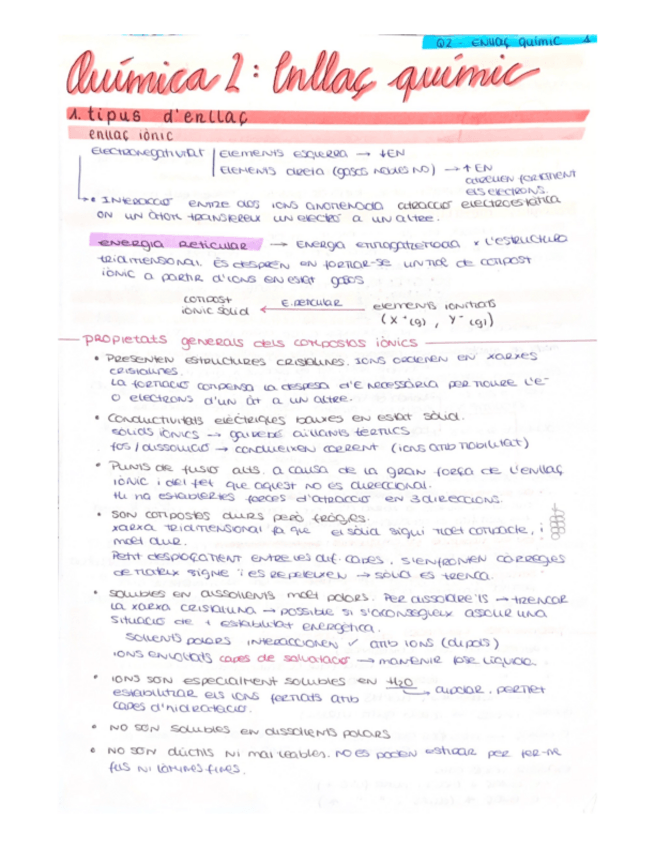 Q2 - Enllaç químic 1
Química 2: Enllaç químic
1. tipus d'enllaç
enllaç iònic
Electronegativitat | Elements esquerra → ↓EN
Elements dreta (gasos nobles no) → ↑ EN
atreuen fortment
els electrons.
• Interacció entre dos ions anomenada atracció electroestàtica
on un àtom transfereix un electró a un altre.
energia reticular → Energia emmagatzemada x l'estructura
tridimensional. És desprèn en formar-se un mol de compost
iònic a partir d'ions en estat gasós
compost
iònic sòlid
E. reticular
elements ionitzats
(X⁺(g), Y⁻(g))
propietats generals dels compostos iònics
• Presenten estructures cristal·lines. Ions ordenen en xarxes
cristal·lines.
La formació compensa la despesa d'E necessària per moure l'e⁻
o electrons d'un àt a un altre.
• Conductivitats elèctriques baixes en estat sòlid.
sòlids iònics → gairebé aïllants tèrmics.
fos/dissolució → condueixen corrent (ions amb mobilitat)
• Punts de fusió alts. a causa de la gran força de l'enllaç
iònic i del fet que aquest no es direccional.
Hi ha establertes forces d'atracció en 3 direccions.
• són compostos durs però fràgils.
xarxa tridimensional fa que el sòlid sigui molt compacte, i
molt dur.
Petit desplaçament entre les dif. capes, s'enfronten càrregues
de mateix signe i es repel·leixen → sòlid es trenca.
• solubles en dissolvents molt polars. Per dissoldre'ls → trencar
la xarxa cristal·lina → possible si s'aconsegueix assolir una
situació de + estabilitat energètica.
solvents polars interaccionen ✓ amb ions (dipols)
ions envoltats capes de solvatació → mantenir fase líquida.
• Ions són especialment solubles en H₂O
dipolar, permet
estabilitzar els ions formats amb
capes d'hidratació.
• No són solubles en dissolvents polars
• No són dúctils ni mal·leables. No es poden estirar per fer-ne
fils ni làmines fines.